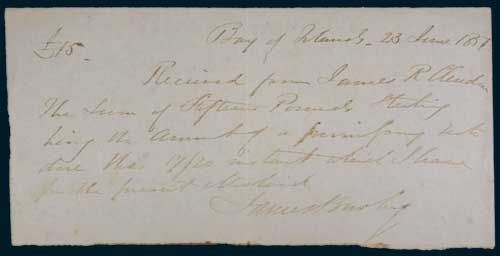 £15. Bay of Islands - 23 June 1837
Received from James R Clendon
the Sum of Fifteen Pounds Sterling
being the amount of a promissory note
due this 17/20 instant which I have
for the present mislaid
James Busby